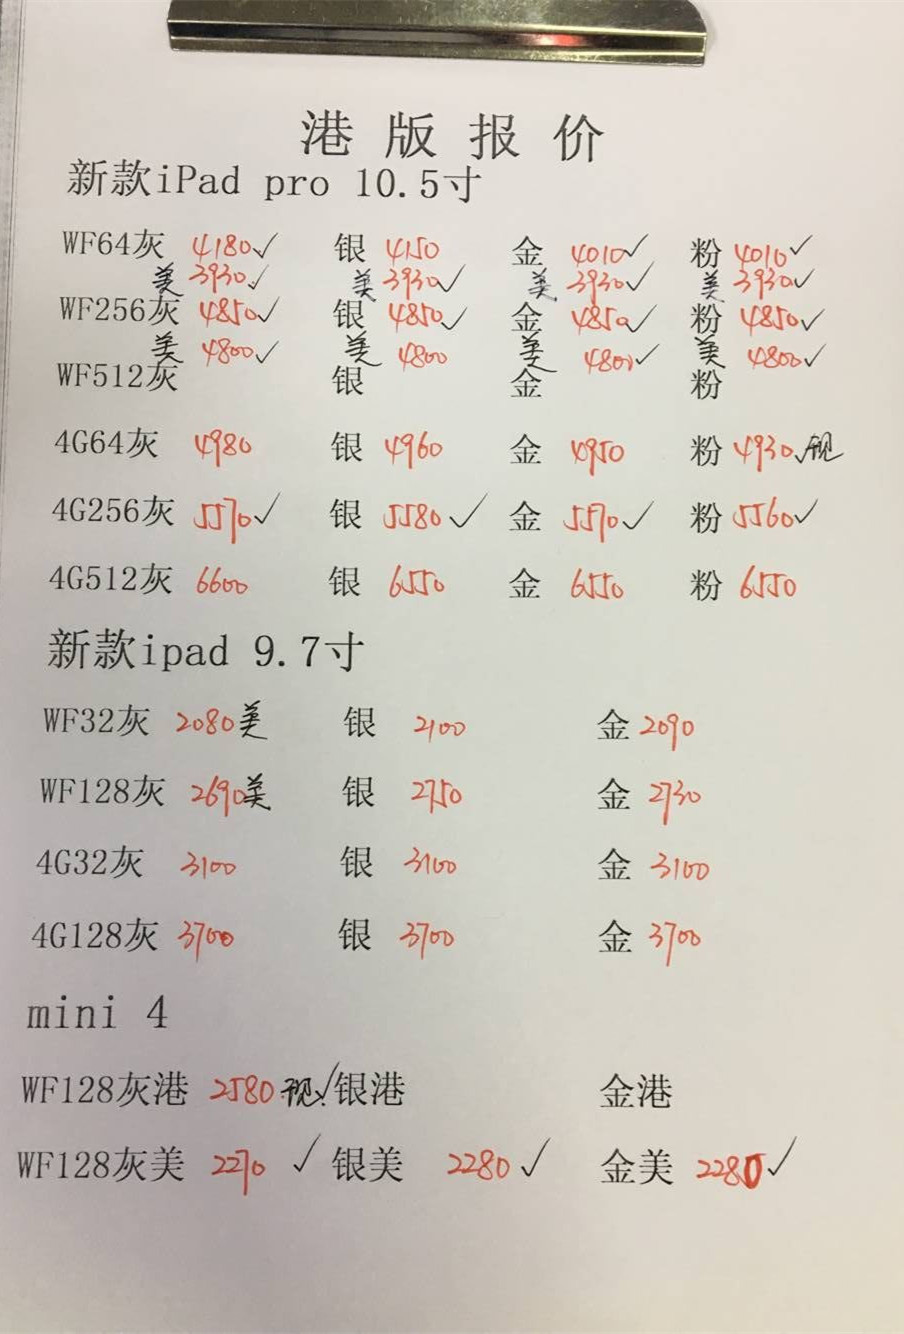 港版报价
新款iPad pro 10.5寸
WF64灰 4180✓ 银 4150 金 4010✓ 粉 4010✓
美 3930✓ 美 3930✓ 美 3930✓ 美 3930✓
WF256灰 4850✓ 银 4850✓ 金 4850✓ 粉 4850✓
美 4800✓ 美 4800 美 4800✓ 美 4800✓
WF512灰 银 金 粉
4G64灰 4980 银 4960 金 4950 粉 4930✓现
4G256灰 5570✓ 银 5580✓ 金 5570✓ 粉 5560✓
4G512灰 6600 银 6550 金 6550 粉 6550
新款ipad 9.7寸
WF32灰 2080美 银 2100 金 2090
WF128灰 2690美 银 2750 金 2730
4G32灰 3100 银 3100 金 3100
4G128灰 3700 银 3700 金 3700
mini 4
WF128灰港 2580现✓ 银港 金港
WF128灰美 2270 ✓ 银美 2280✓ 金美 2280✓